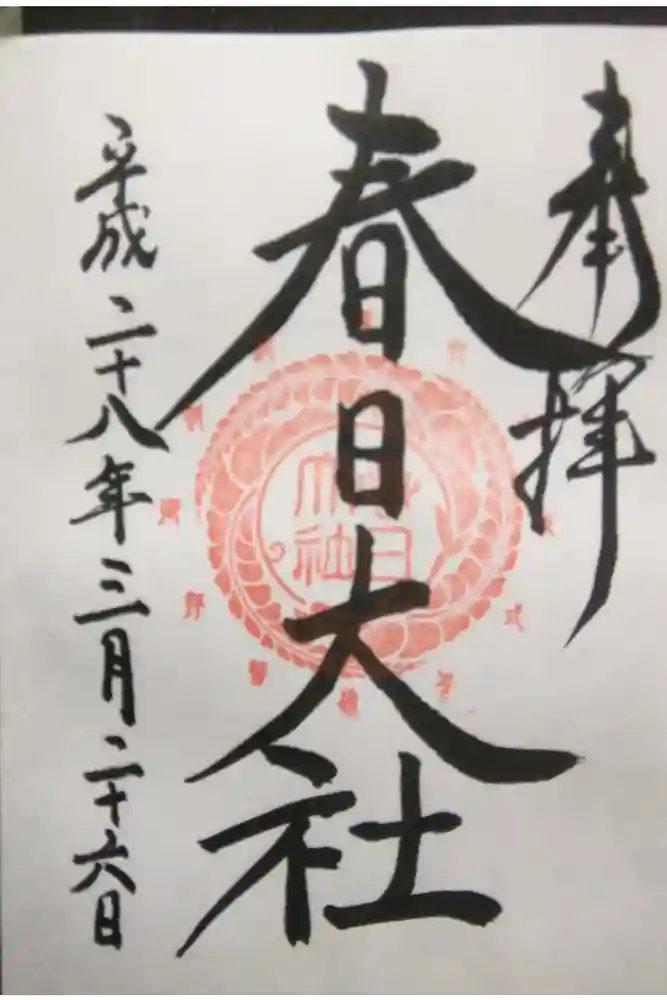 奉拝
春日大社
平成二十八年三月二十六日
春日
大社